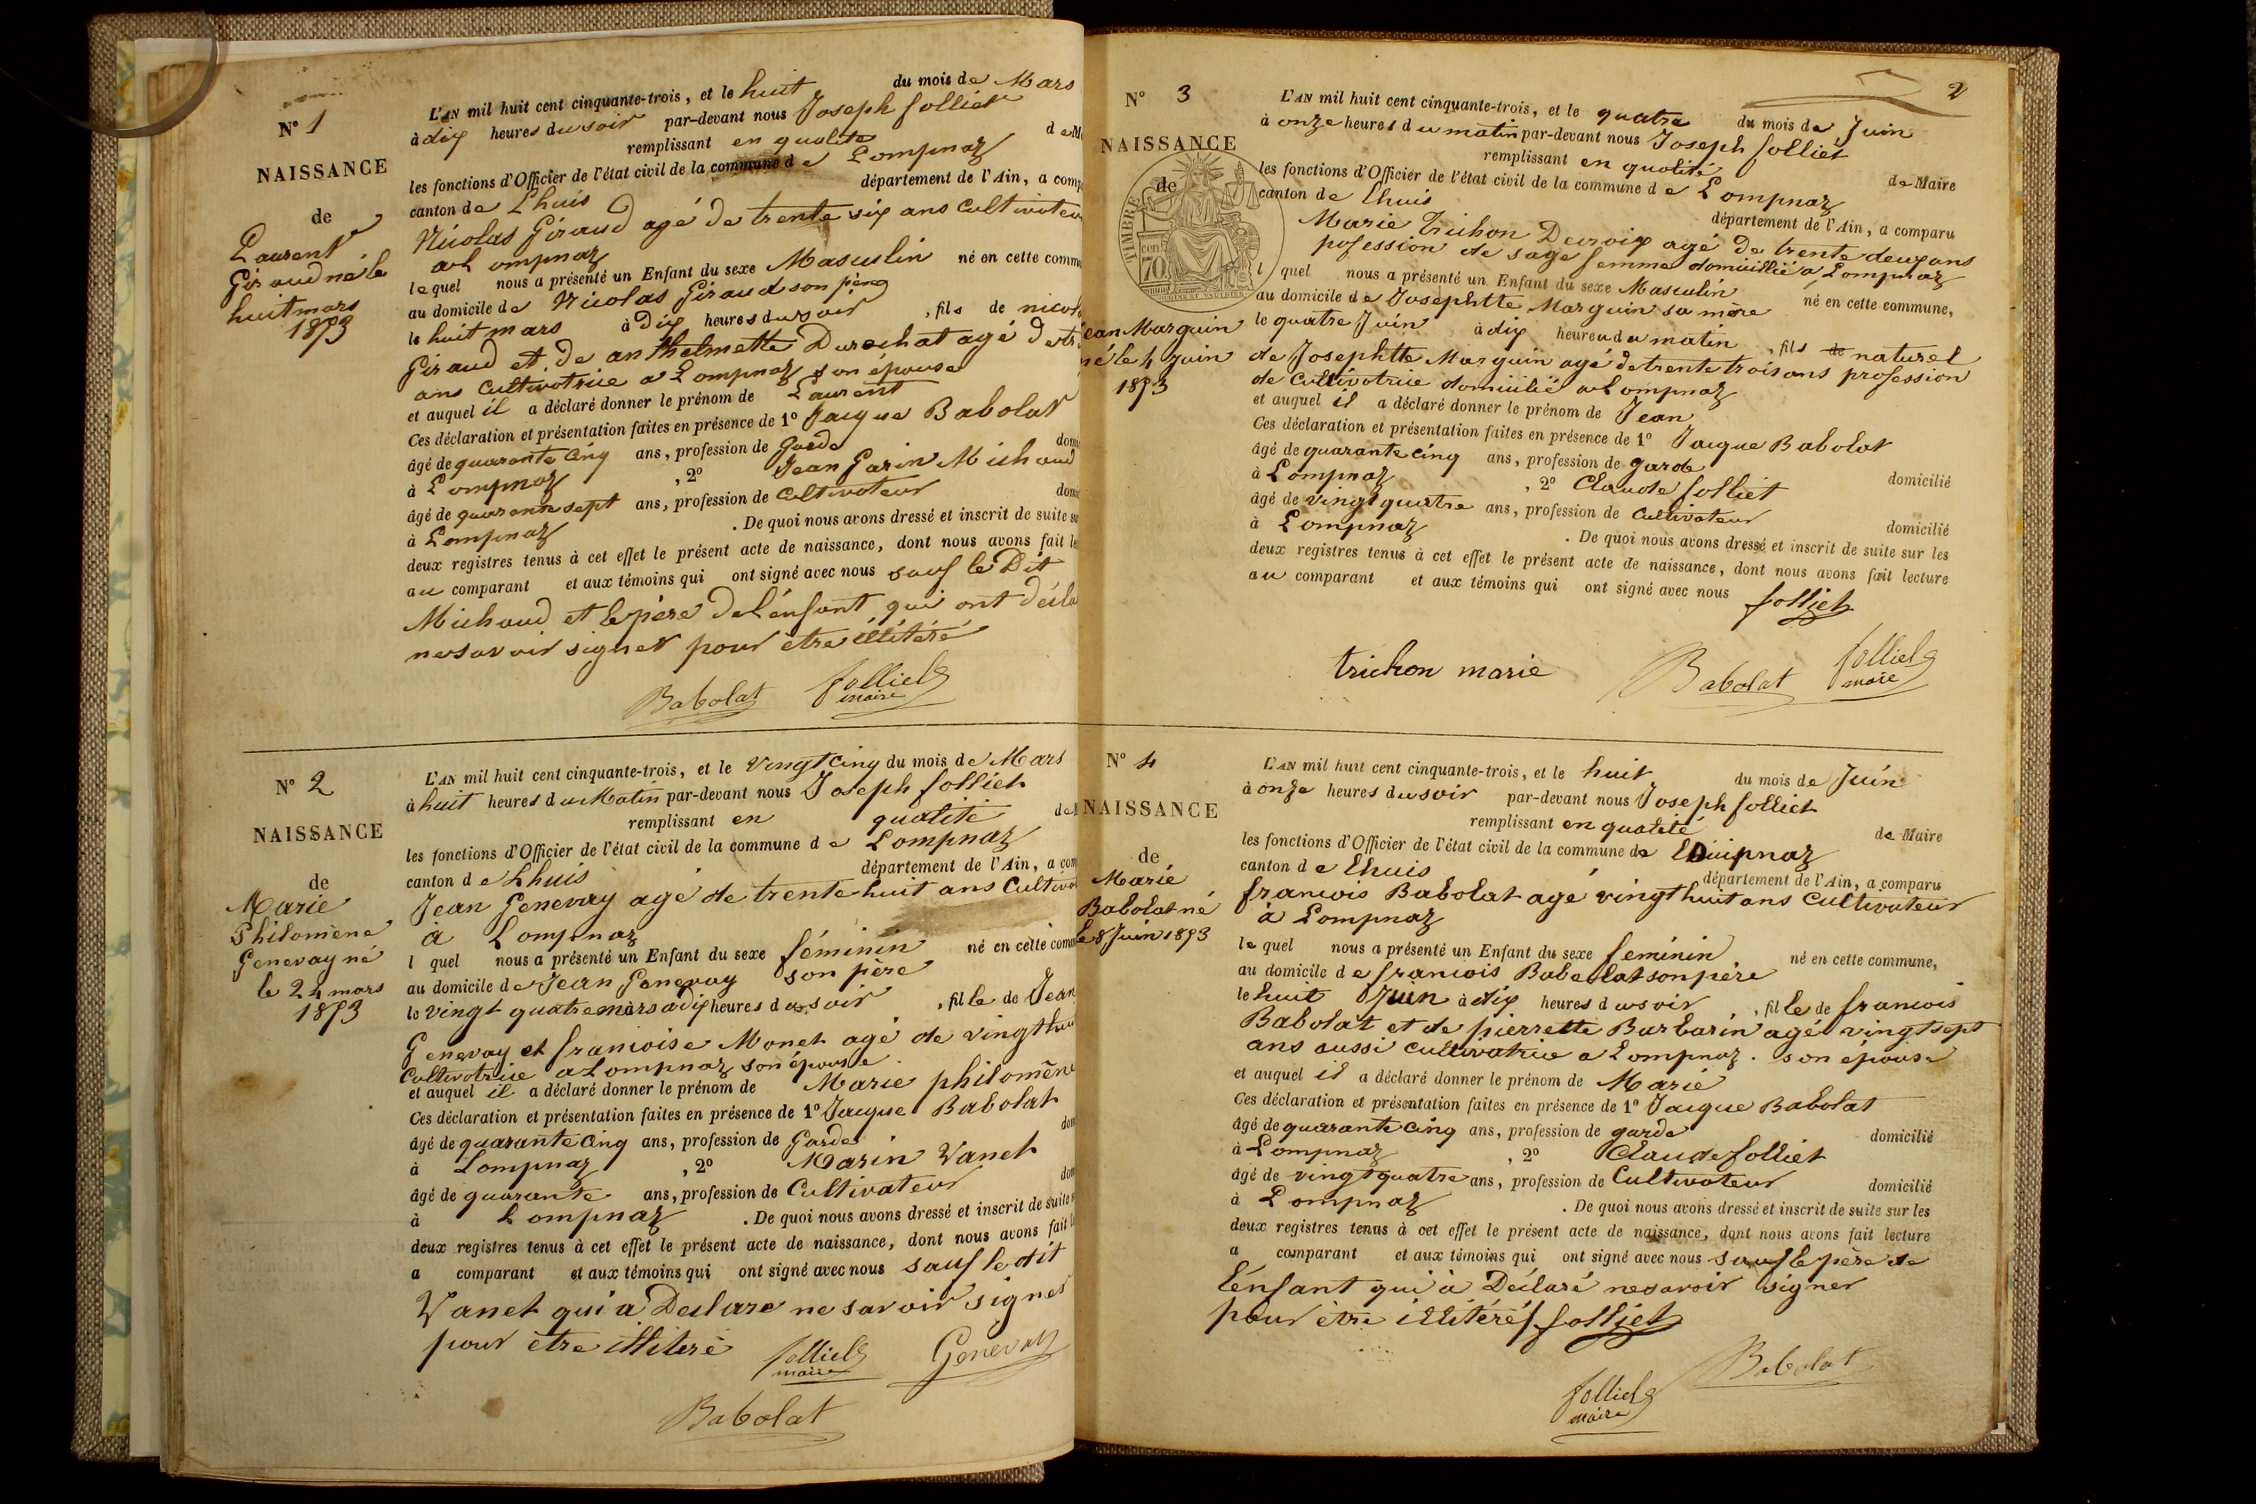 N° 1
NAISSANCE
de
Laurent
Giraud né le
huit mars
1853
L'AN mil huit cent cinquante-trois, et le huit du mois de Mars
à dix heures du soir par-devant nous Joseph folliet
remplissant en qualité de M
les fonctions d'Officier de l'état civil de la commune de Lompnaz
canton de Lhuis département de l'Ain, a comp
Nicolas Giraud agé de trente six ans Cultivateur
a Lompnaz
lequel nous a présenté un Enfant du sexe Masculin né en cette commu
au domicile de Nicolas Giraud son père
le huit mars à Dix heures du soir, fils de nicola
Giraud et de anthelmette Durochat agé de tr
ans Cultivatrice a Lompnaz son épouse
et auquel il a déclaré donner le prénom de Laurent
Ces déclaration et présentation faites en présence de 1° Jacque Babolat
âgé de quarante cinq ans, profession de Garde domi
à Lompnaz, 2° Jean Garin Michaud
âgé de quarante sept ans, profession de Cultivateur domi
à Lompnaz. De quoi nous avons dressé et inscrit de suite su
deux registres tenus à cet effet le présent acte de naissance, dont nous avons fait le
au comparant et aux témoins qui ont signé avec nous sauf le Dit
Michaud et le père de l'enfant qui ont décla
ne savoir signer pour être illitéré
Babolat folliet
maire
N° 2
NAISSANCE
de
Marie
Philomène
Genevay né
le 24 mars
1853
L'AN mil huit cent cinquante-trois, et le vingt cinq du mois de Mars
à huit heures du Matin par-devant nous Joseph folliet
remplissant en qualité de
les fonctions d'Officier de l'état civil de la commune de Lompnaz
canton de Lhuis département de l'Ain, a com
Jean Genevay agé de trente huit ans Cultivat
a Lompnaz
l quel nous a présenté un Enfant du sexe féminin né en cette comm
au domicile de Jean Genevay son père
le vingt quatre mars a dix heures du soir, fille de Jean
Genevay et francoise Monet agé de vingt hui
Cultivatrice a Lompnaz son épouse
et auquel il a déclaré donner le prénom de Marie philomène
Ces déclaration et présentation faites en présence de 1° Jacque Babolat
âgé de quarante cinq ans, profession de Garde dom
à Lompnaz, 2° Marin Vanet
âgé de quarante ans, profession de Cultivateur dom
à Lompnaz. De quoi nous avons dressé et inscrit de suite s
deux registres tenus à cet effet le présent acte de naissance, dont nous avons fait l
a comparant et aux témoins qui ont signé avec nous sauf le dit
Vanet qui a Declare ne savoir signer
pour être illiteré folliet Genevay
maire
Babolat
2
N° 3
NAISSANCE
de
TIMBRE
cen
70
ean Marguin
né le 4 juin
1853
L'AN mil huit cent cinquante-trois, et le quatre du mois de Juin
à onze heures du matin par-devant nous Joseph folliet
remplissant en qualité de Maire
les fonctions d'Officier de l'état civil de la commune de Lompnaz
canton de Lhuis département de l'Ain, a comparu
Marie Trichon Decroix agé de trente deux ans
pofession de sage femme domicilié a Lompnaz
l quel nous a présenté un Enfant du sexe Masculin né en cette commune,
au domicile de Josephtte Marguin sa mère
le quatre Juin à dix heures du matin, fils de naturel
de Josephtte Marguin agé de trente trois ans profession
de Cultivatrice domicilié a Lompnaz
et auquel il a déclaré donner le prénom de Jean
Ces déclaration et présentation faites en présence de 1° Jacque Babolat
âgé de quarante cinq ans, profession de garde domicilié
à Lompnaz, 2° Claude folliet
âgé de vingt quatre ans, profession de Cultivateur domicilié
à Lompnaz. De quoi nous avons dressé et inscrit de suite sur les
deux registres tenus à cet effet le présent acte de naissance, dont nous avons fait lecture
au comparant et aux témoins qui ont signé avec nous folliet
trichon marie Babolat folliet
maire
N° 4
NAISSANCE
de
Marie
Babolat né
le 8 Juin 1853
L'AN mil huit cent cinquante-trois, et le huit du mois de Juin
à onze heures du soir par-devant nous Joseph folliet
remplissant en qualité de Maire
les fonctions d'Officier de l'état civil de la commune de Lompnaz
canton de Lhuis département de l'Ain, a comparu
francois Babolat agé vingt huit ans Cultivateur
à Lompnaz
le quel nous a présenté un Enfant du sexe feminin né en cette commune,
au domicile de francois Babolat son père
le huit Juin à dix heures du soir, fille de francois
Babolat et de pierrette Barbarin agé vingt sept
ans aussi cultivatrice a Lompnaz. son épouse
et auquel il a déclaré donner le prénom de Marie
Ces déclaration et présentation faites en présence de 1° Jacque Babolat
âgé de quarante cinq ans, profession de garde domicilié
à Lompnaz, 2° Claude folliet
âgé de vingt quatre ans, profession de Cultivateur domicilié
à Lompnaz. De quoi nous avons dressé et inscrit de suite sur les
deux registres tenus à cet effet le présent acte de naissance, dont nous avons fait lecture
a comparant et aux témoins qui ont signé avec nous sauf le père de
l'énfant qui a Déclaré ne savoir signer
pour être illitéré / folliet
folliet Babolat
maire